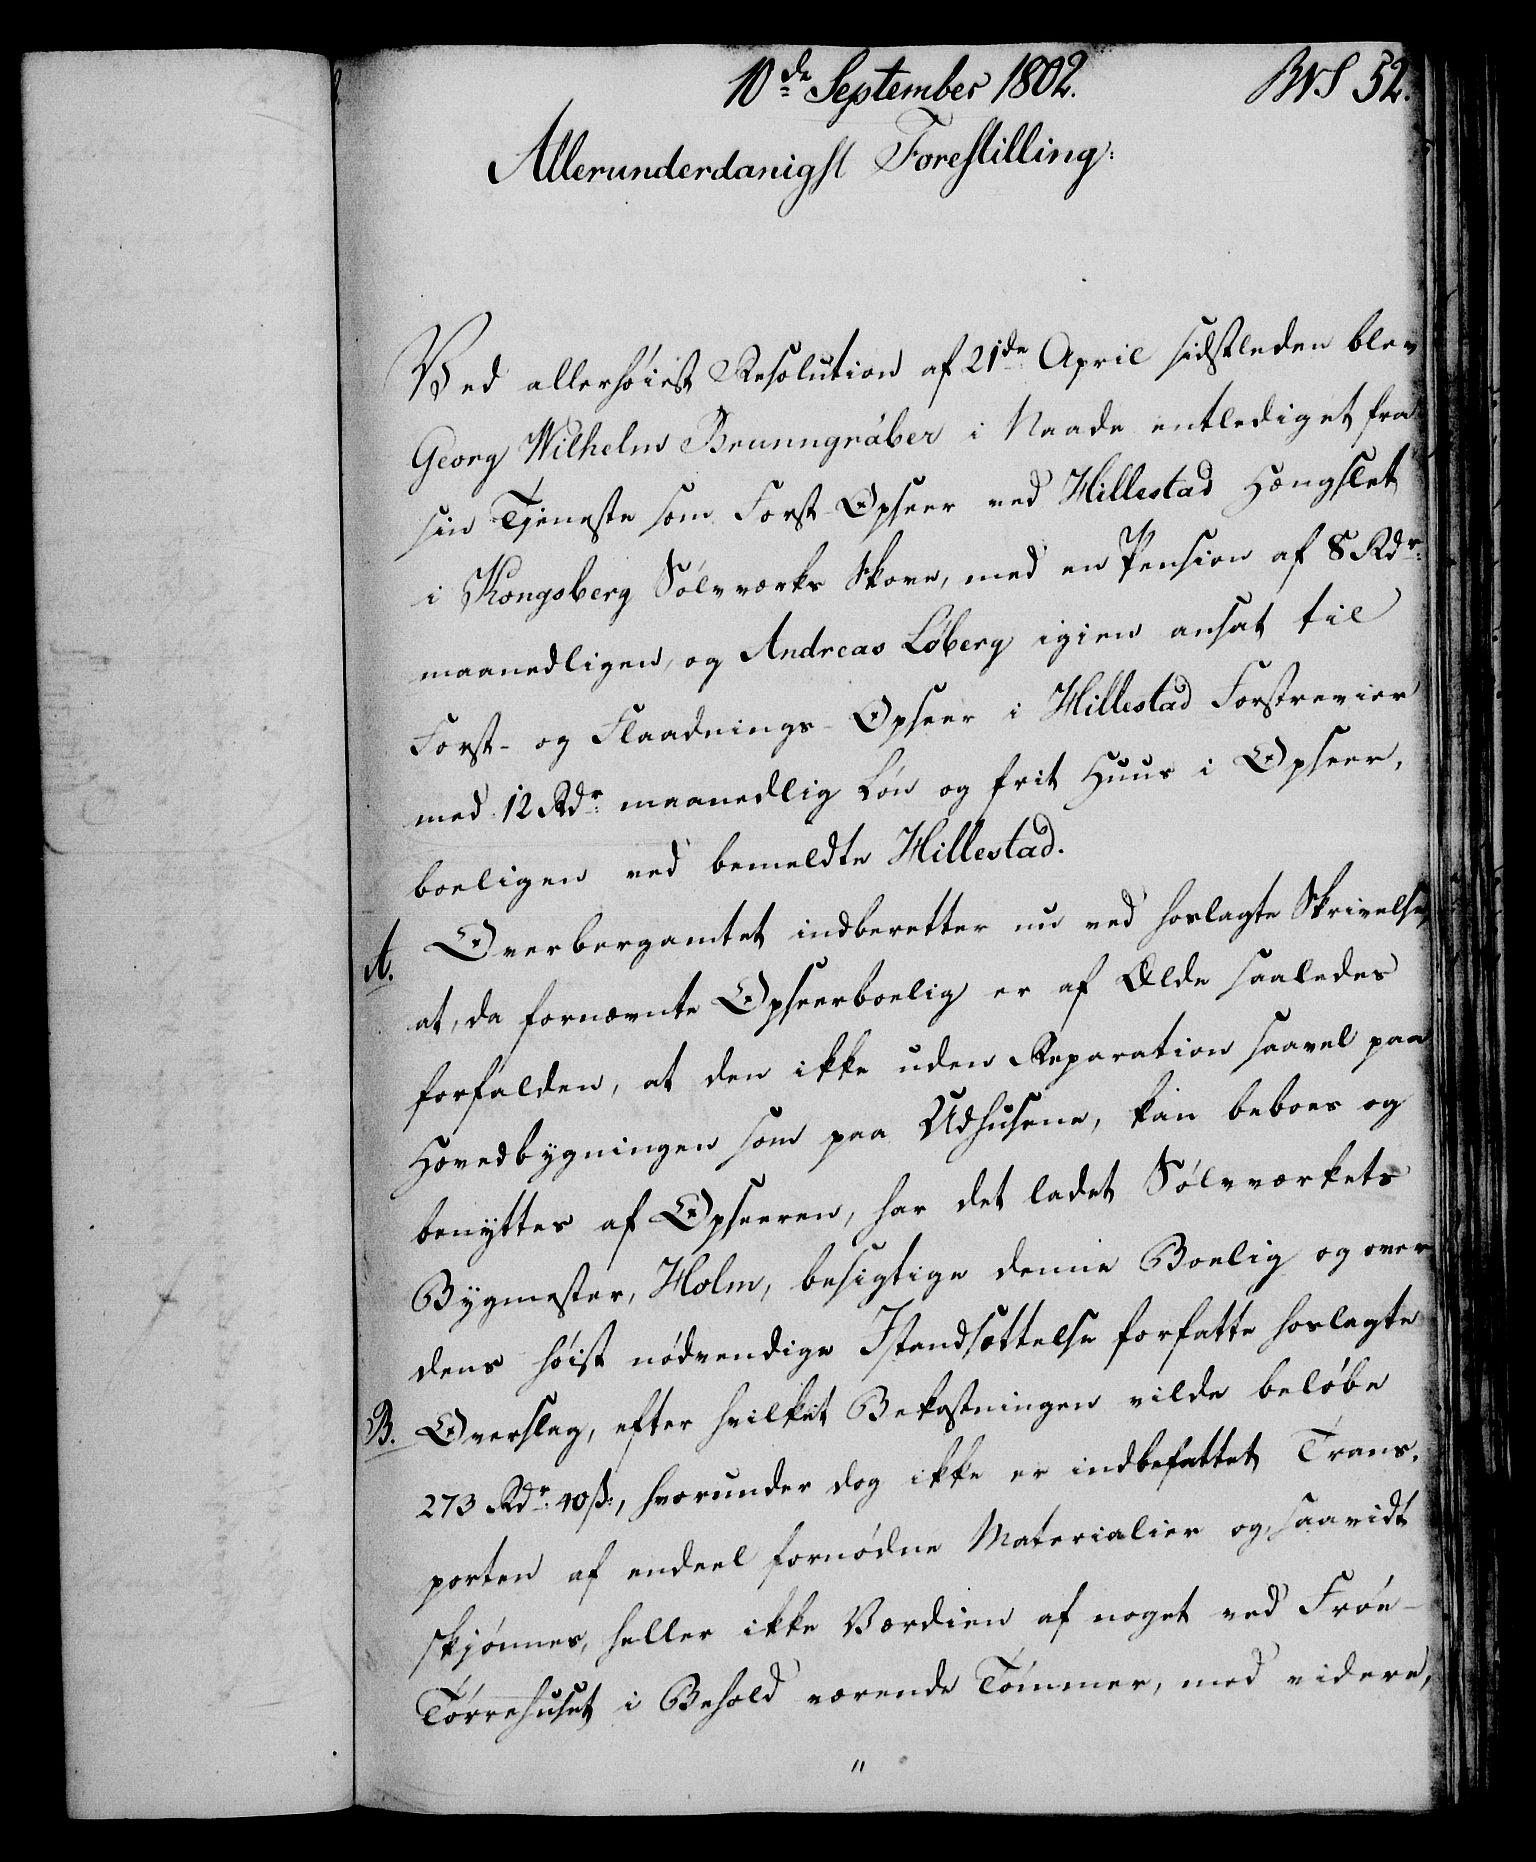 10de September 1802. BVS 52.
Allerunderdanigst Forestilling:
Ved allerhöiest Resolution af 21de April sidstleden blev
Georg Wilhelm Brunngräber i Naade entlediget fra
sin Tjeneste som Forst-Opseer ved Hillestad Hængslet
i Kongsberg Sölvværks Skove, med en Pension af 8 Rdr.
maanedligen, og Andreas Löberg igien ansat til
Forst- og Flaadnings-Opseer i Hillestad Forstrevier
med 12 Rdr. maanedlig Lön og frit Huus i Opseer-
boeligen ved bemeldte Hillestad.
A. Overbergamtet indberetter nu ved hoslagte Skrivelse,
at, da fornævnte Opseerboelig er af Ælde saaledes
forfalden, at den ikke uden Reparation saavel paa
Hovedbygningen som paa Udhusene, kan beboes og
benyttes af Opseeren, har det ladet Sölvværkets
Bygmester, Holm, besigtige denne Boelig og over
dens höist nödvendige Istandsættelse forfatte hoslagte
B. Overslag, efter hvilket Bekostningen vilde belöbe
273 Rdr. 40 ß:, hvorunder dog ikke er indbefattet Trans-
porten af endeel fornödne Materialier og, saavidt
skjönnes, heller ikke Værdien af noget ved Fröe-
Törrehuset i Behold værende Tömmer, med videre,
"